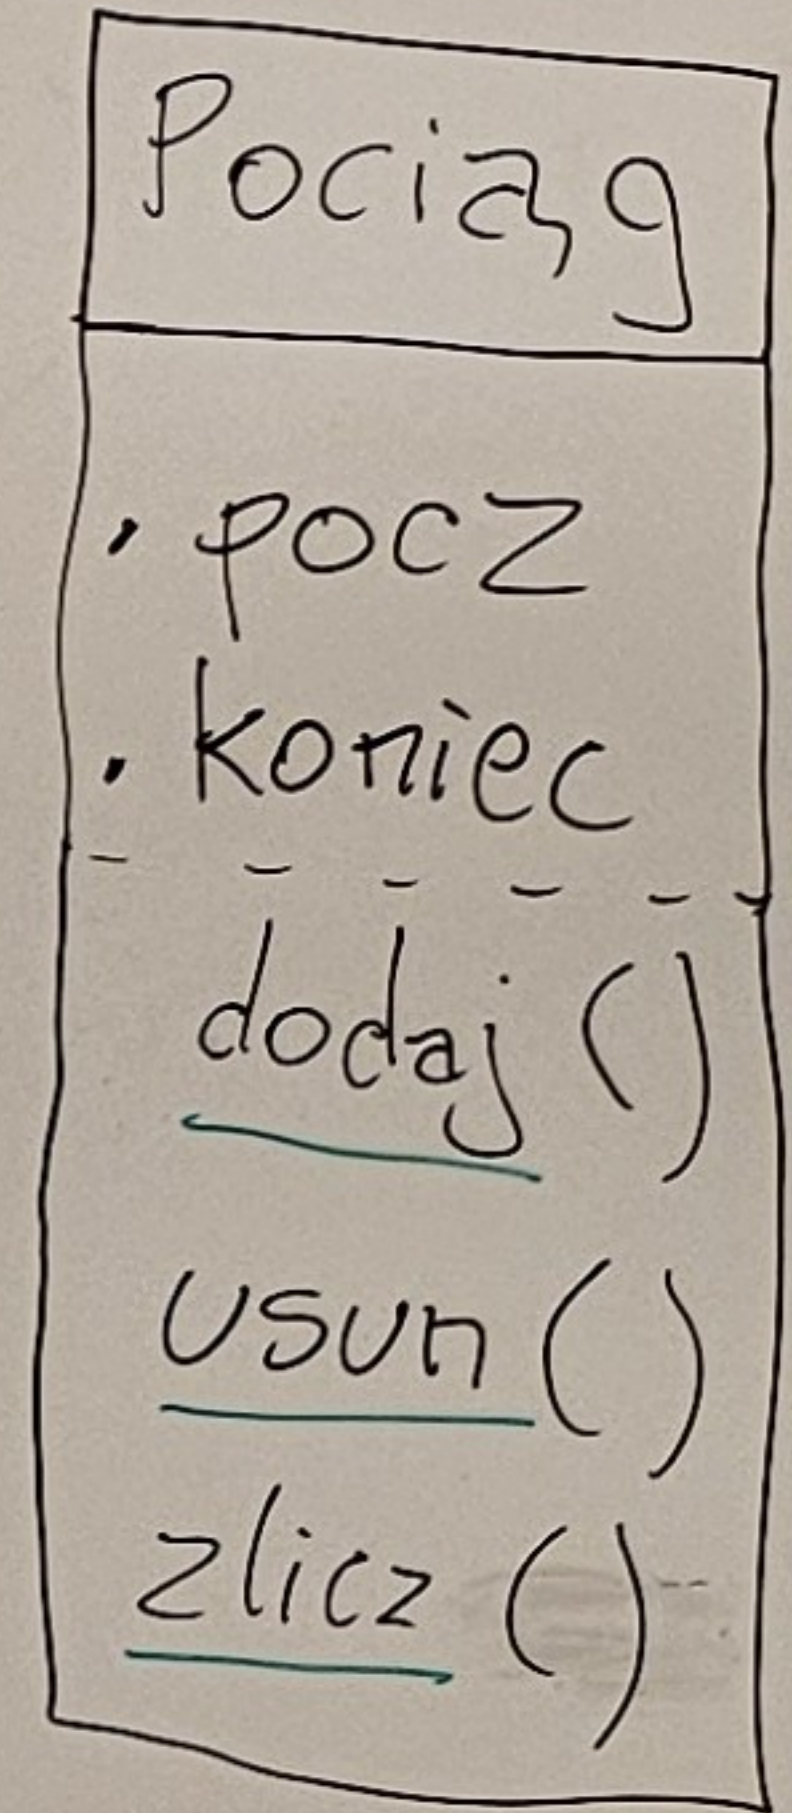 Pociąg
• pocz
• koniec
dodaj ()
usun ()
zlicz ()